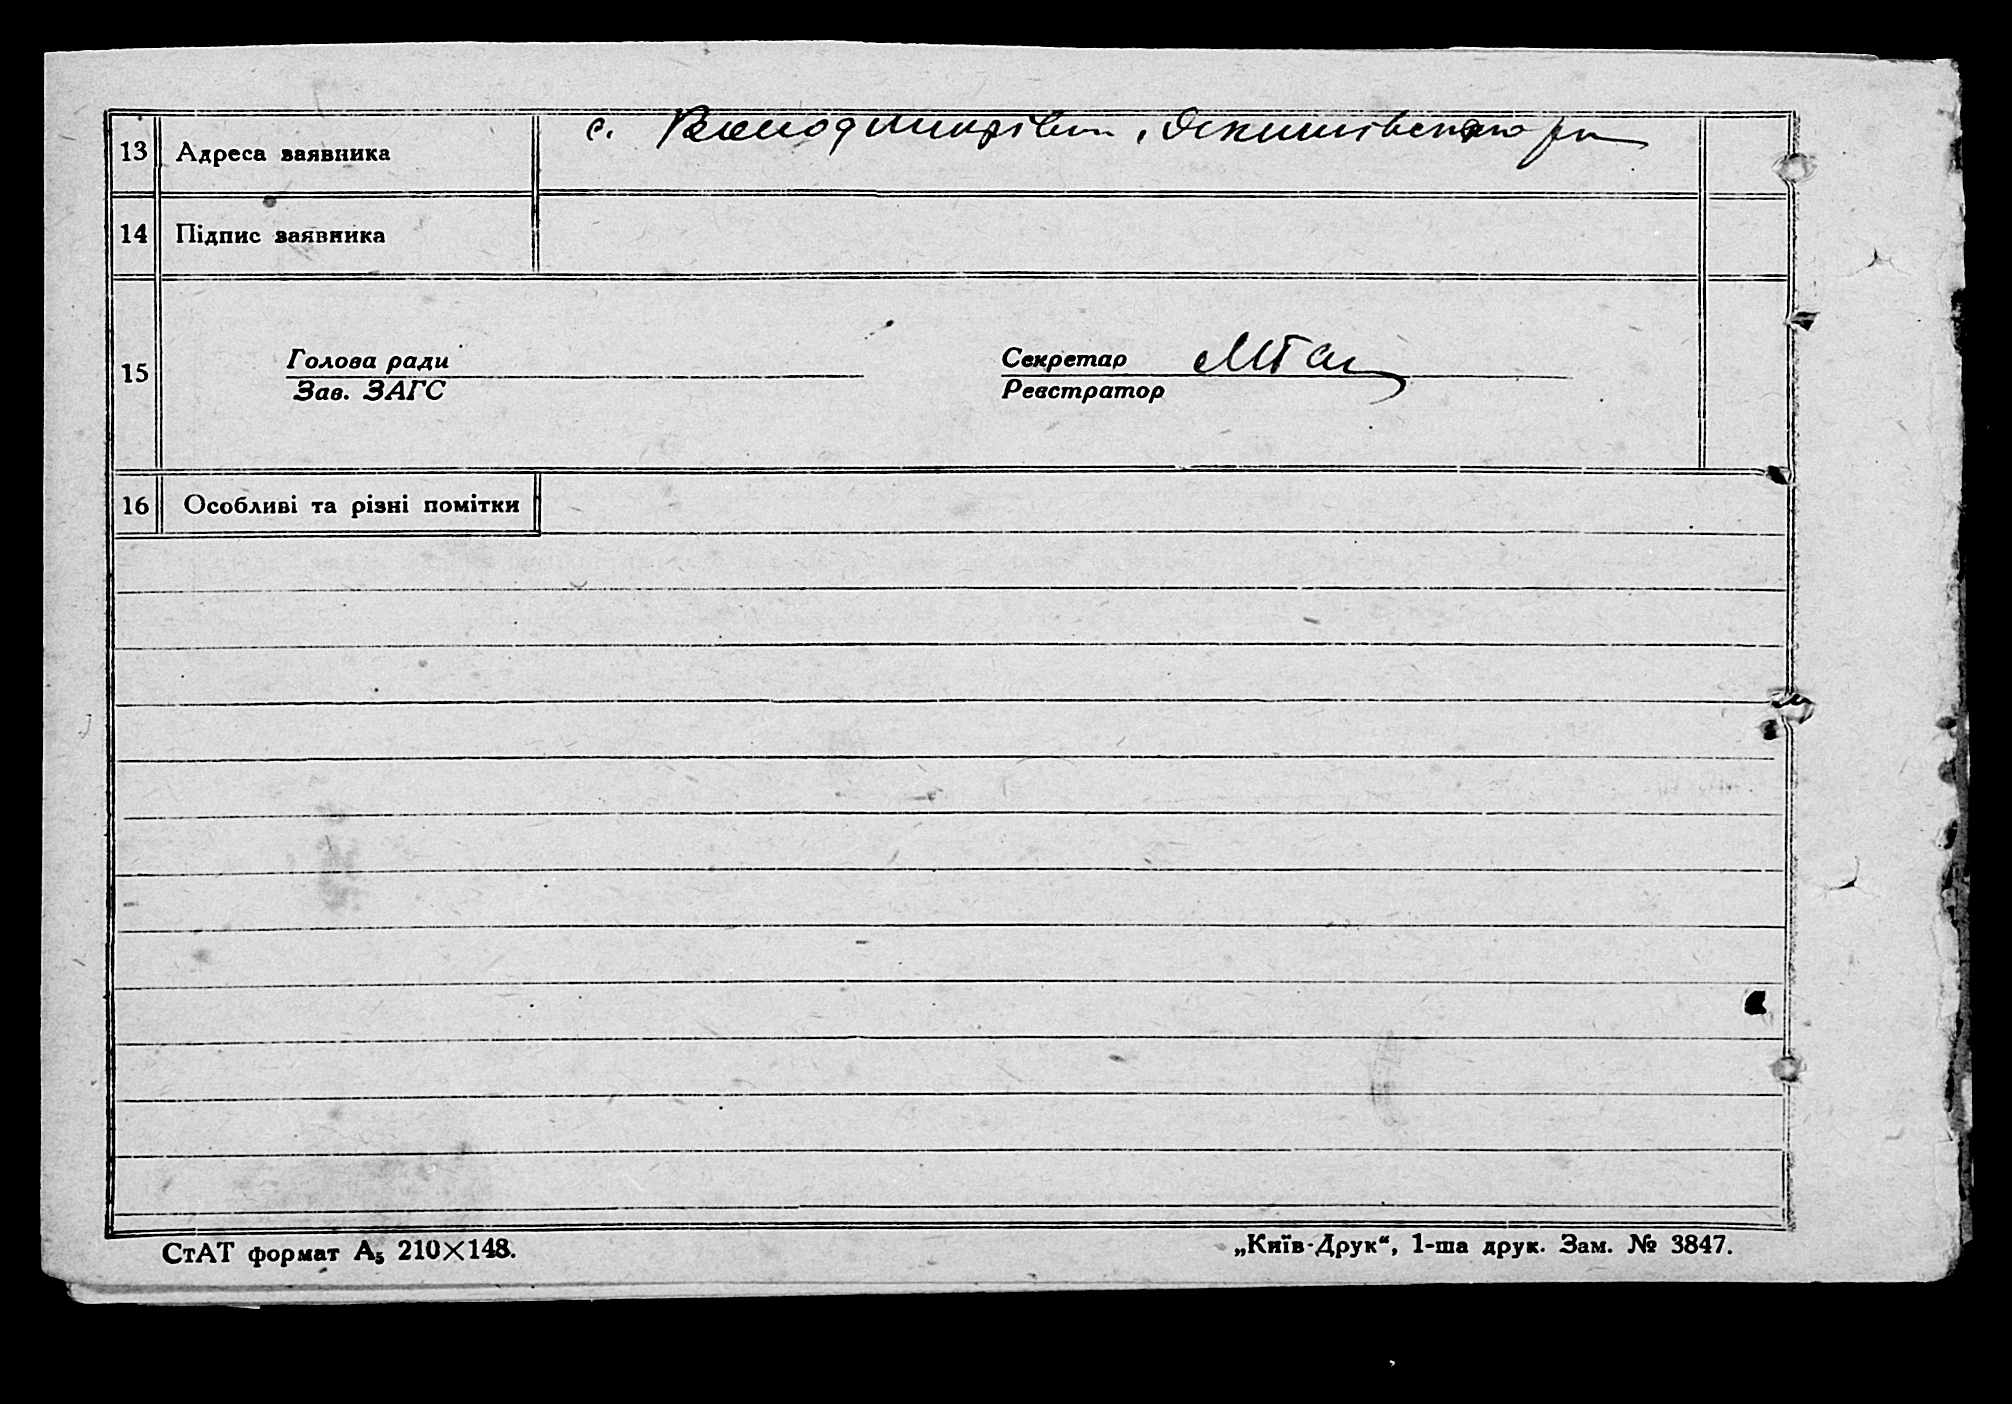 13 Адреса заявника с. Володимирівка, Осипенківського р-н
14 Підпис заявника
15 Голова ради Секретар
Зав. ЗАГС Реєстратор
16 Особливі та різні помітки
СтАТ формат А5 210×148. „Київ-Друк“, 1-ша друк. Зам. № 3847.